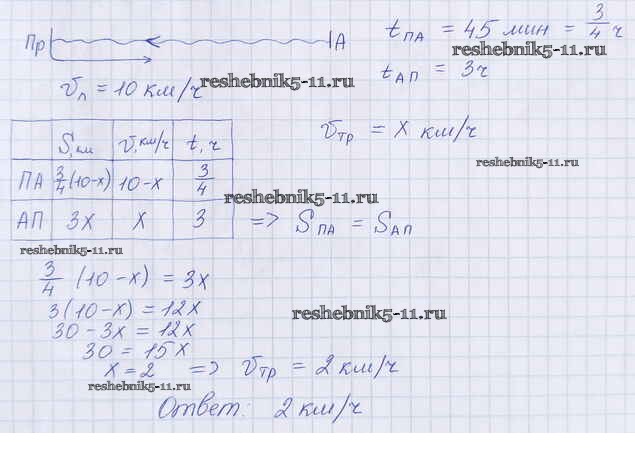 Пр A
t ПА = 45 мин = 3/4 ч
reshebnik5-11.ru
t АП = 3ч
reshebnik5-11.ru
v л = 10 км/ч
v тр = x км/ч
reshebnik5-11.ru
S, км v, км/ч t, ч
ПА 3/4(10-x) 10-x 3/4
reshebnik5-11.ru
АП 3x x 3 => S ПА = S АП
reshebnik5-11.ru
3/4 (10-x) = 3x
3(10-x) = 12x
reshebnik5-11.ru
30-3x = 12x
30 = 15x
x = 2 => v тр = 2 км/ч
reshebnik5-11.ru
Ответ: 2 км/ч